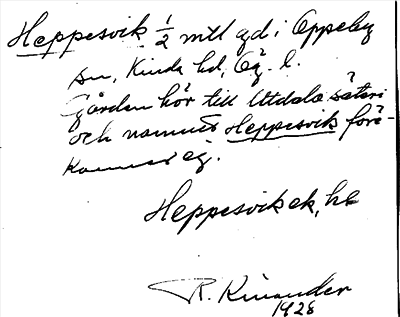 Heppesvik 1/2 mtl gd i Oppeby
sn, Kinda hd, Ög. l.
Gården hör till Utdala säteri
och namnet Heppesvik före-
kommer ej.
Heppesvik ek, hs
R. Kinander
1928